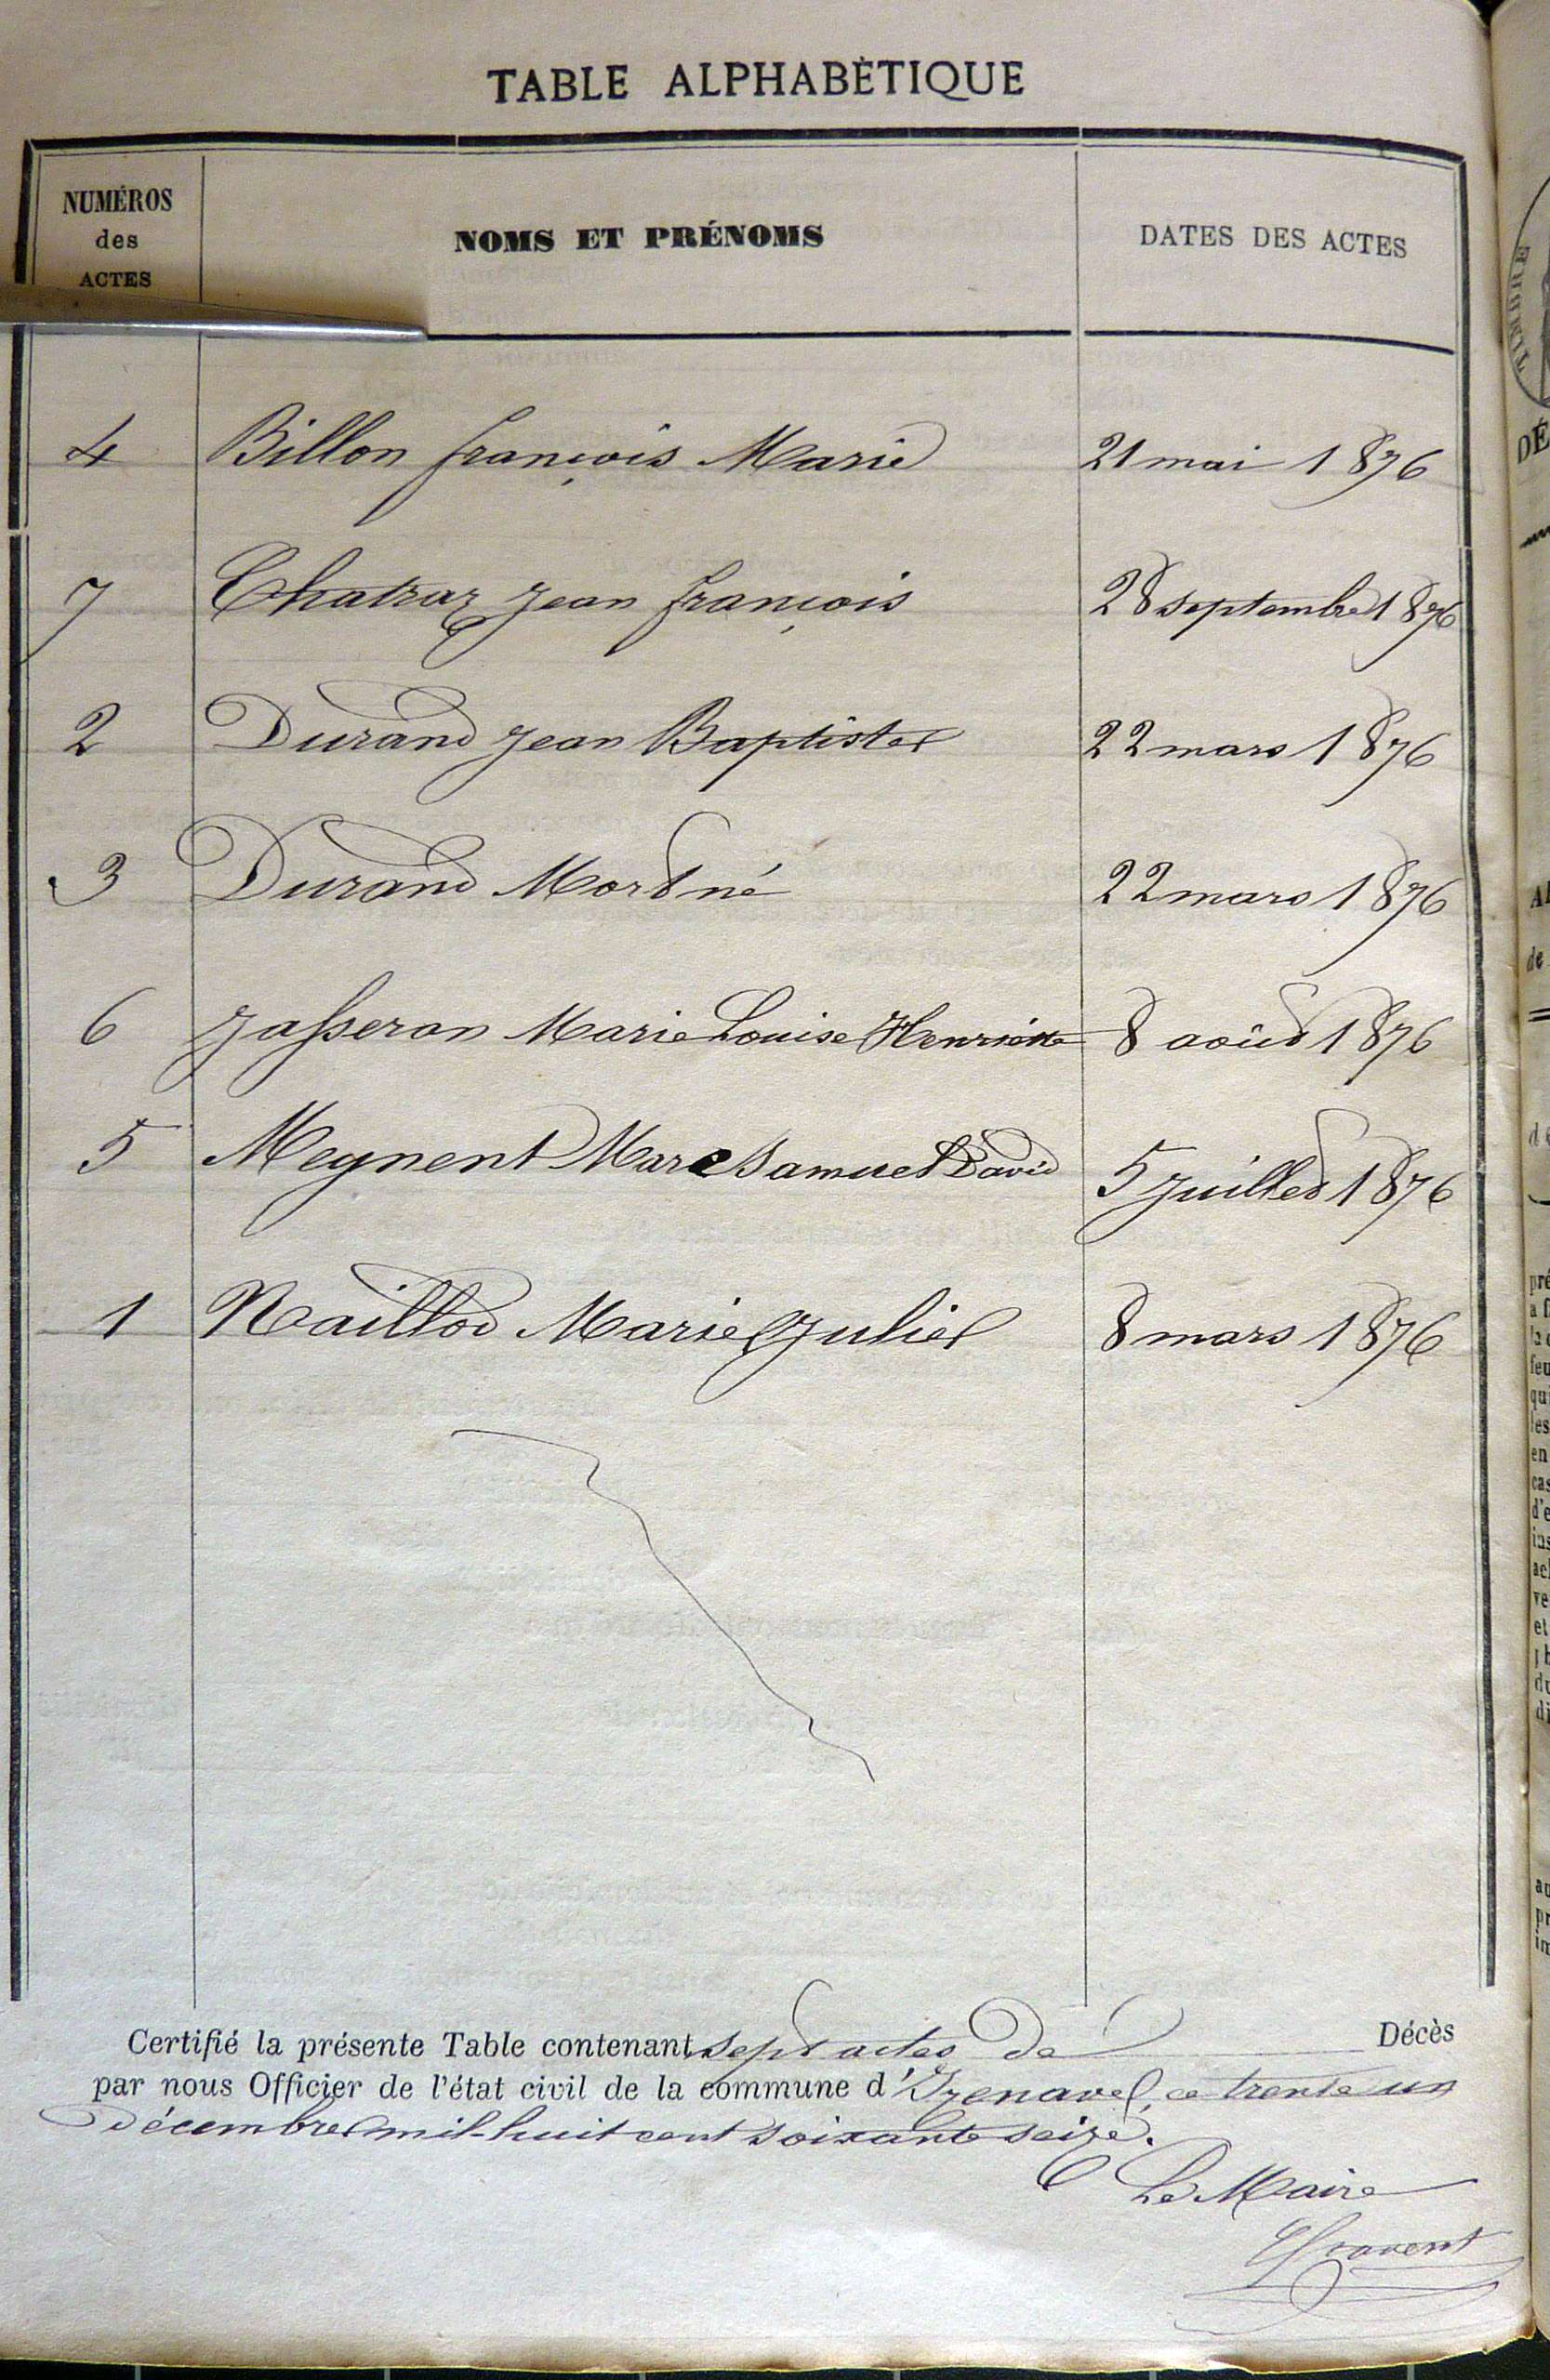 TABLE ALPHABÉTIQUE
NUMÉROS
des
ACTES
NOMS ET PRÉNOMS
DATES DES ACTES
4 Billon françois Marie 21 mai 1876
7 Chatraz Jean françois 28 septembre 1876
2 Durand Jean Baptiste 22 mars 1876
3 Durand Mort né 22 mars 1876
6 Jasseron Marie Louise Henriette 8 août 1876
5 Meynent Marc Samuel David 5 Juillet 1876
1 Naillod Marie Julie 8 mars 1876
Certifié la présente Table contenant sept actes de Décès
par nous Officier de l'état civil de la commune d'Izenave, ce trente un
décembre mil-huit cent soixante seize.
Le Maire
TIMBRE
DÉ
de